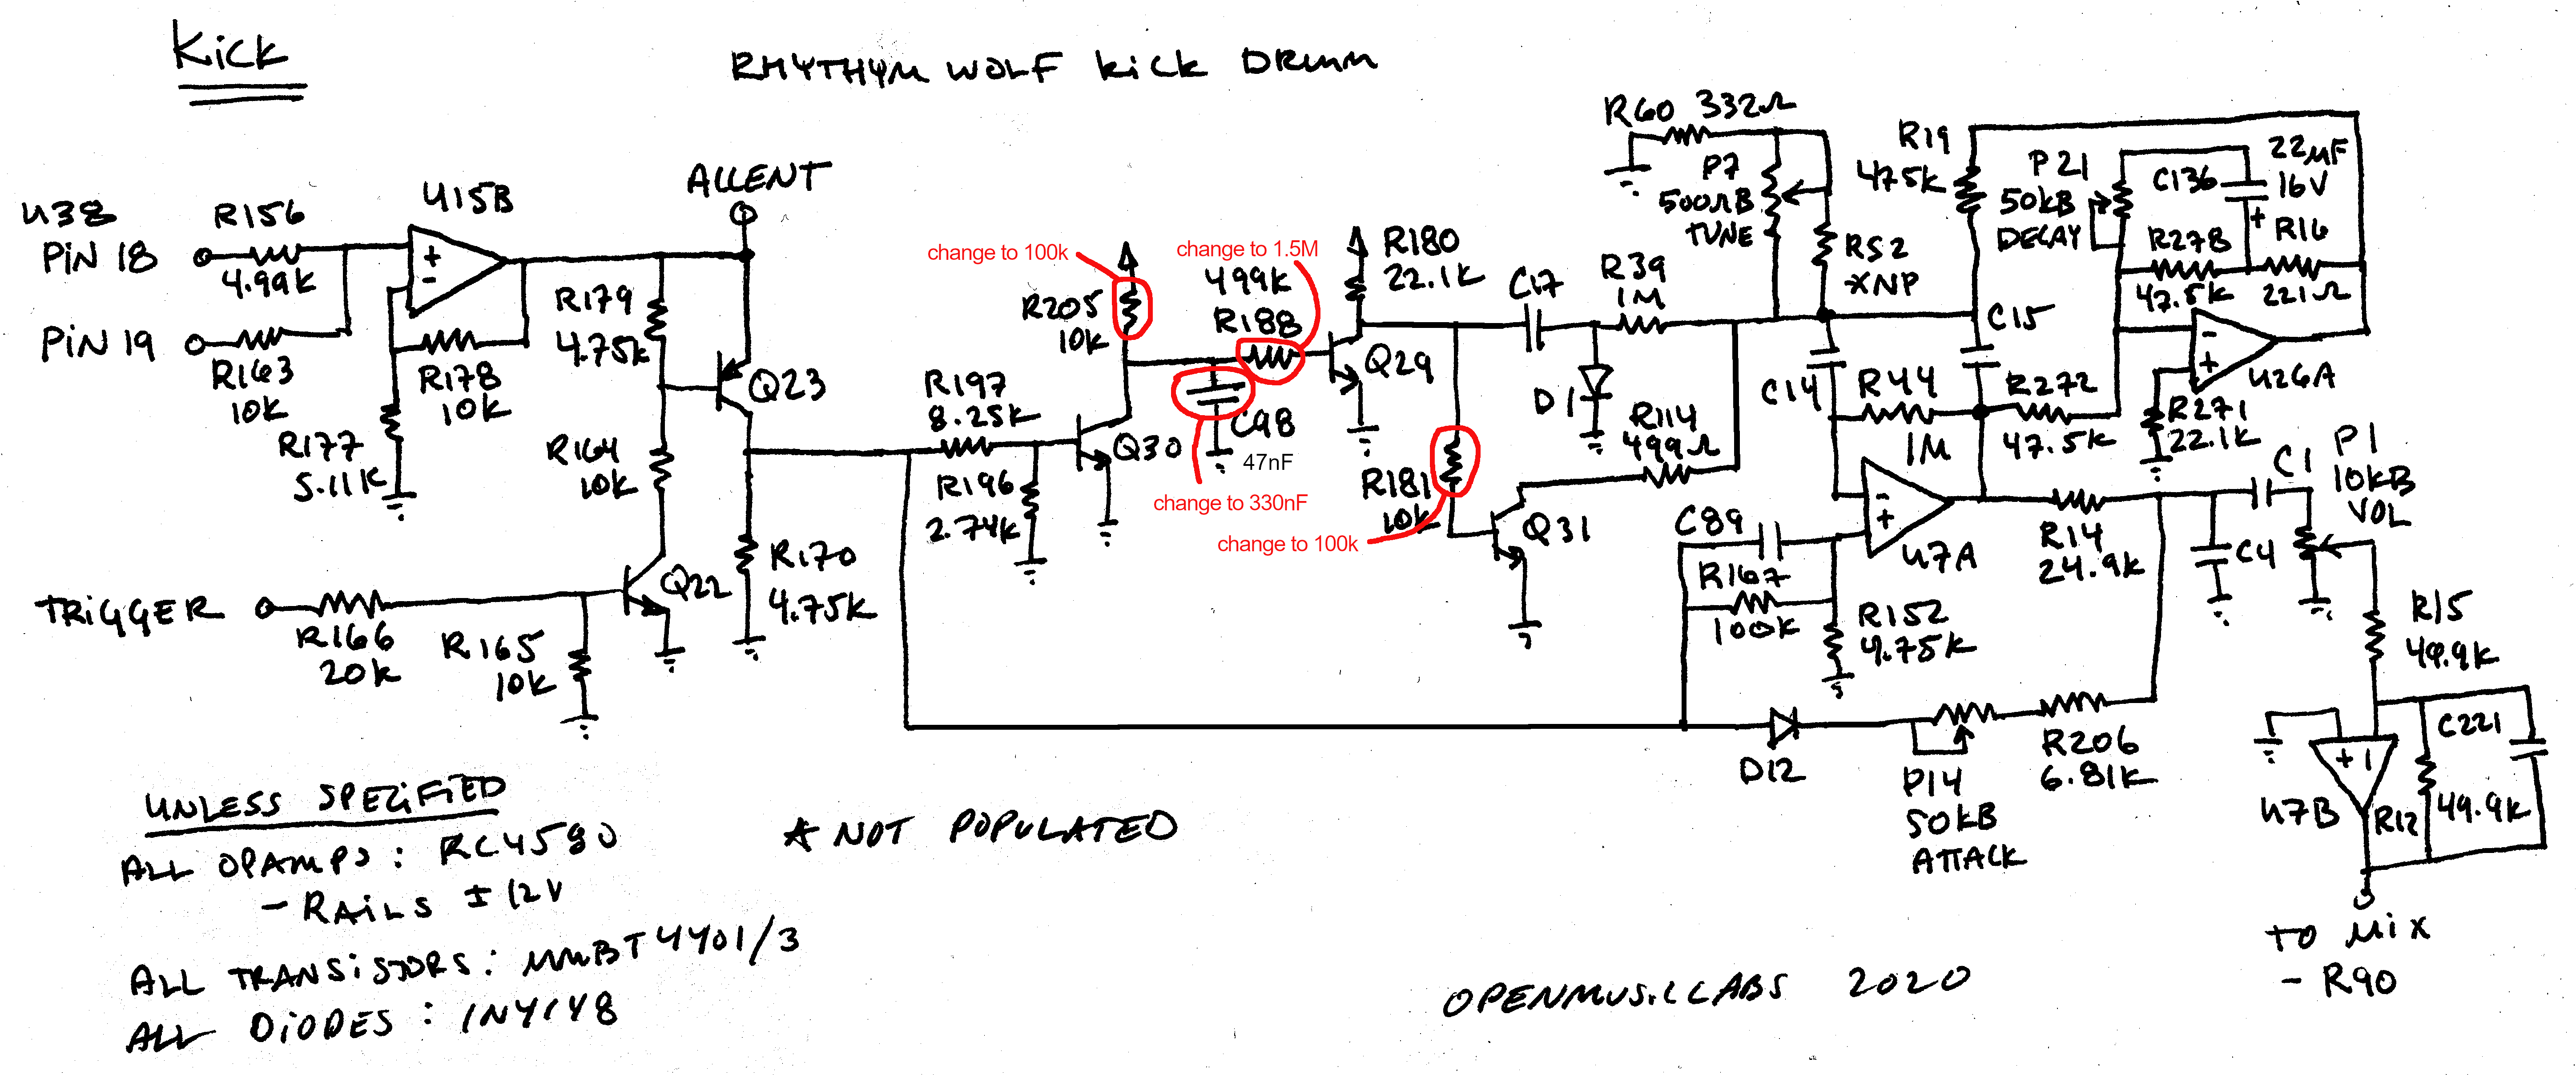 Kick
RHYTHYM WOLF KICK DRUM
U38
PIN 18
R156
4.99K
PIN 19
R163
10K
U15B
+
-
R178
10K
R177
5.11K
ACCENT
R179
4.75K
Q23
R164
10K
TRIGGER
R166
20K
R165
10K
Q22
R170
4.75K
R197
8.25K
R196
2.74K
Q30
change to 100k
R205
10K
change to 1.5M
499K
R188
C98
47nF
change to 330nF
R180
22.1K
Q29
R181
10K
change to 100k
C17
D1
R39
1M
R114
499Ω
Q31
R60 332Ω
P7
500ΩB
TUNE
R52
*NP
R19
475K
C14
C15
R44
1M
R272
47.5K
P21
50KB
DECAY
C136
22µF
16V
+
R278
47.5K
R16
221Ω
-
+
U26A
R271
22.1K
C89
R167
100K
R152
4.75K
-
+
U7A
R14
24.9K
C4
C1
P1
10KB
VOL
R15
49.9K
D12
P14
50KB
ATTACK
R206
6.81K
+
-
U7B
R12
49.9K
C221
TO MIX
- R90
UNLESS SPECIFIED
ALL OPAMPS: RC4580
- RAILS ±12V
ALL TRANSISTORS: MMBT4401/3
ALL DIODES: 1N4148
* NOT POPULATED
OPENMUSICLABS 2020